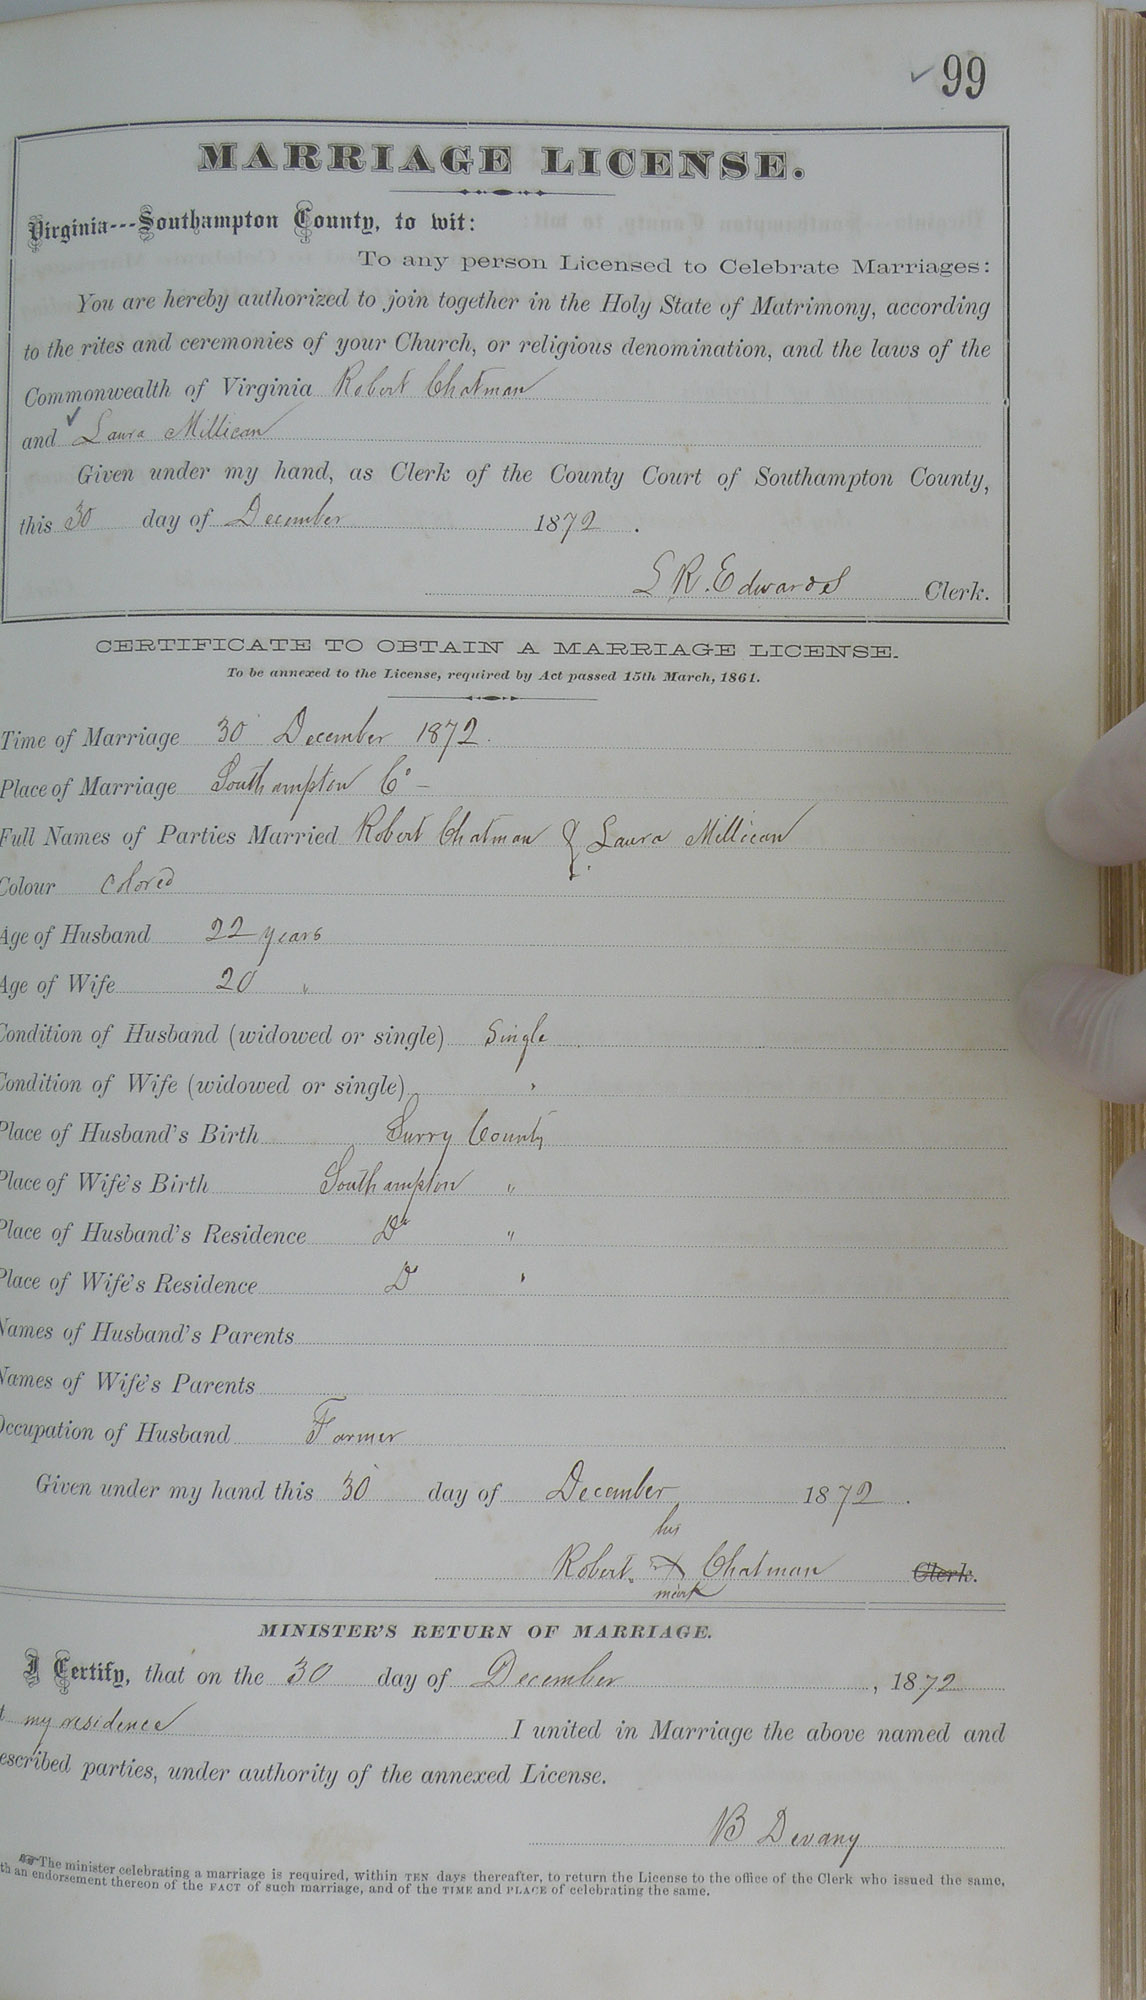 ✓ 99
MARRIAGE LICENSE.
Virginia---Southampton County, to wit:
To any person Licensed to Celebrate Marriages:
You are hereby authorized to join together in the Holy State of Matrimony, according
to the rites and ceremonies of your Church, or religious denomination, and the laws of the
Commonwealth of Virginia Robert Chatman
and ✓ Laura Millican
Given under my hand, as Clerk of the County Court of Southampton County,
this 30 day of December 1872.
L R. Edwards Clerk.
CERTIFICATE TO OBTAIN A MARRIAGE LICENSE.
To be annexed to the License, required by Act passed 15th March, 1861.
Time of Marriage 30 December 1872.
Place of Marriage Southampton Co -
Full Names of Parties Married Robert Chatman & Laura Millican
Colour Colored
Age of Husband 22 years
Age of Wife 20 "
Condition of Husband (widowed or single) Single
Condition of Wife (widowed or single) "
Place of Husband's Birth Surry County
Place of Wife's Birth Southampton "
Place of Husband's Residence Do "
Place of Wife's Residence Do "
Names of Husband's Parents
Names of Wife's Parents
Occupation of Husband Farmer
Given under my hand this 30 day of December 1872.
his
Robert X Chatman Clerk.
mark
MINISTER'S RETURN OF MARRIAGE.
I Certify, that on the 30 day of December, 1872
my residence I united in Marriage the above named and
escribed parties, under authority of the annexed License.
B Devany
The minister celebrating a marriage is required, within TEN days thereafter, to return the License to the office of the Clerk who issued the same,
th an endorsement thereon of the FACT of such marriage, and of the TIME and PLACE of celebrating the same.